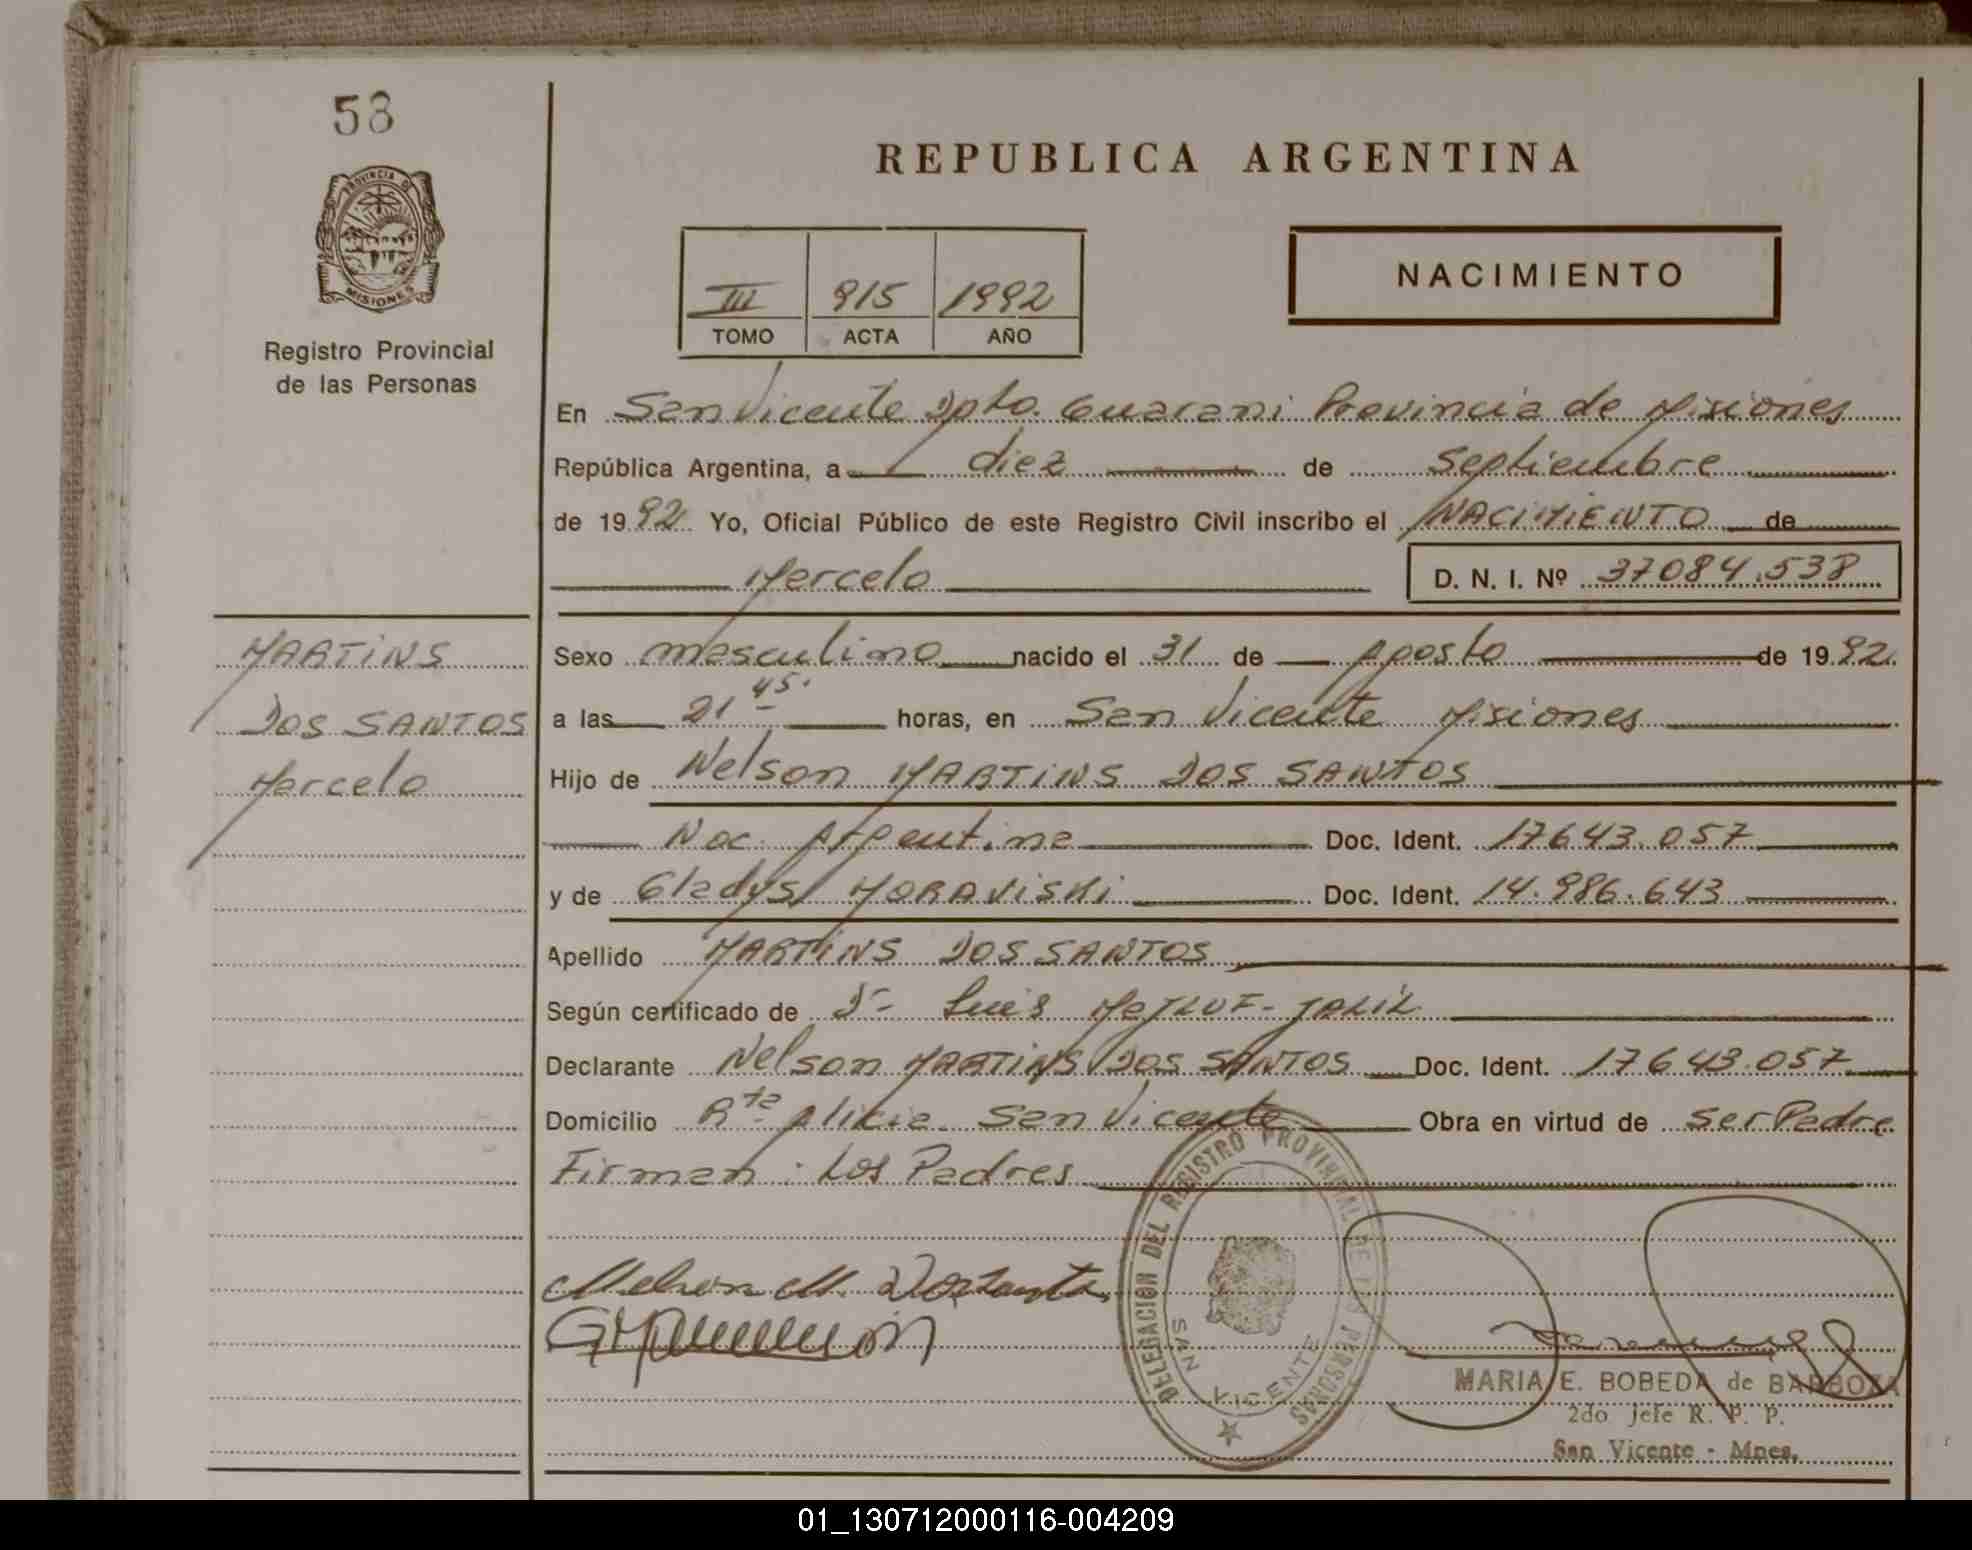 58
PROVINCIA DE
MISIONES
Registro Provincial
de las Personas
REPUBLICA ARGENTINA
III 915 1992
TOMO ACTA AÑO
NACIMIENTO
En San Vicente Dpto. Guarani Provincia de Misiones
República Argentina, a diez de Septiembre
de 1992 Yo, Oficial Público de este Registro Civil inscribo el NACIMIENTO de
Marcelo D. N. I. Nº 37084.538
MARTiNS
DOS SANTOS
Marcelo
Sexo masculino nacido el 31 de Agosto de 1992
a las 21 45. horas, en San Vicente Misiones
Hijo de Nelson MARTiNS DOS SANTOS
Nac. Argentina Doc. Ident. 17643.057
y de Gladys MORAViSKi Doc. Ident. 14.986.643
Apellido MARTiNS DOS SANTOS
Según certificado de Dr Luis JALiL
Declarante Nelson MARTiNS DOS SANTOS Doc. Ident. 17643.057
Domicilio Rta Alicia San Vicente Obra en virtud de ser Padre
Firman: Los Padres
DELEGACION DEL REGISTRO PROVINCIAL DE LAS PERSONAS
SAN VICENTE
MARIA E. BOBEDA de BARBOZA
2do Jefe R. P. P.
San Vicente - Mnes.
01_130712000116-004209